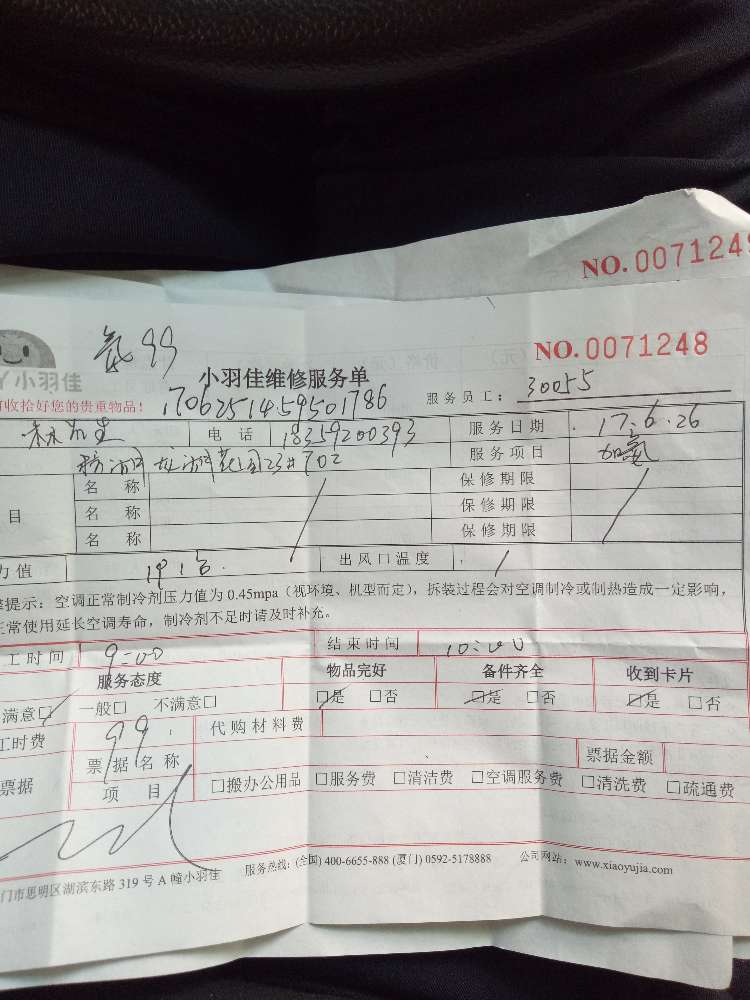 NO. 0071248
氨99
小羽佳
小羽佳维修服务单
NO. 0071248
收拾好您的贵重物品!
1706251459501786
服务员工: 30055
林先生 电话 18359200393 服务日期 17.6.26
花园23#702 服务项目 加氨
名称 保修期限
目 名称 保修期限
名称 保修期限
力值 出风口温度
提示:空调正常制冷剂压力值为 0.45mpa(视环境、机型而定),拆装过程会对空调制冷或制热造成一定影响,
正常使用延长空调寿命,制冷剂不足时请及时补充。
工时间 9:00 结束时间 10:00
服务态度 物品完好 备件齐全 收到卡片
满意□ 一般□ 不满意□ □是 □否 □是 □否 □是 □否
工时费 99 代购材料费
票据 票据名称 票据金额
项目 □搬办公用品 □服务费 □清洁费 □空调服务费 □清洗费 □疏通费
门市思明区湖滨东路 319 号 A 幢小羽佳 服务热线:(全国) 400-6655-888 (厦门) 0592-5178888 公司网站:www.xiaoyujia.com